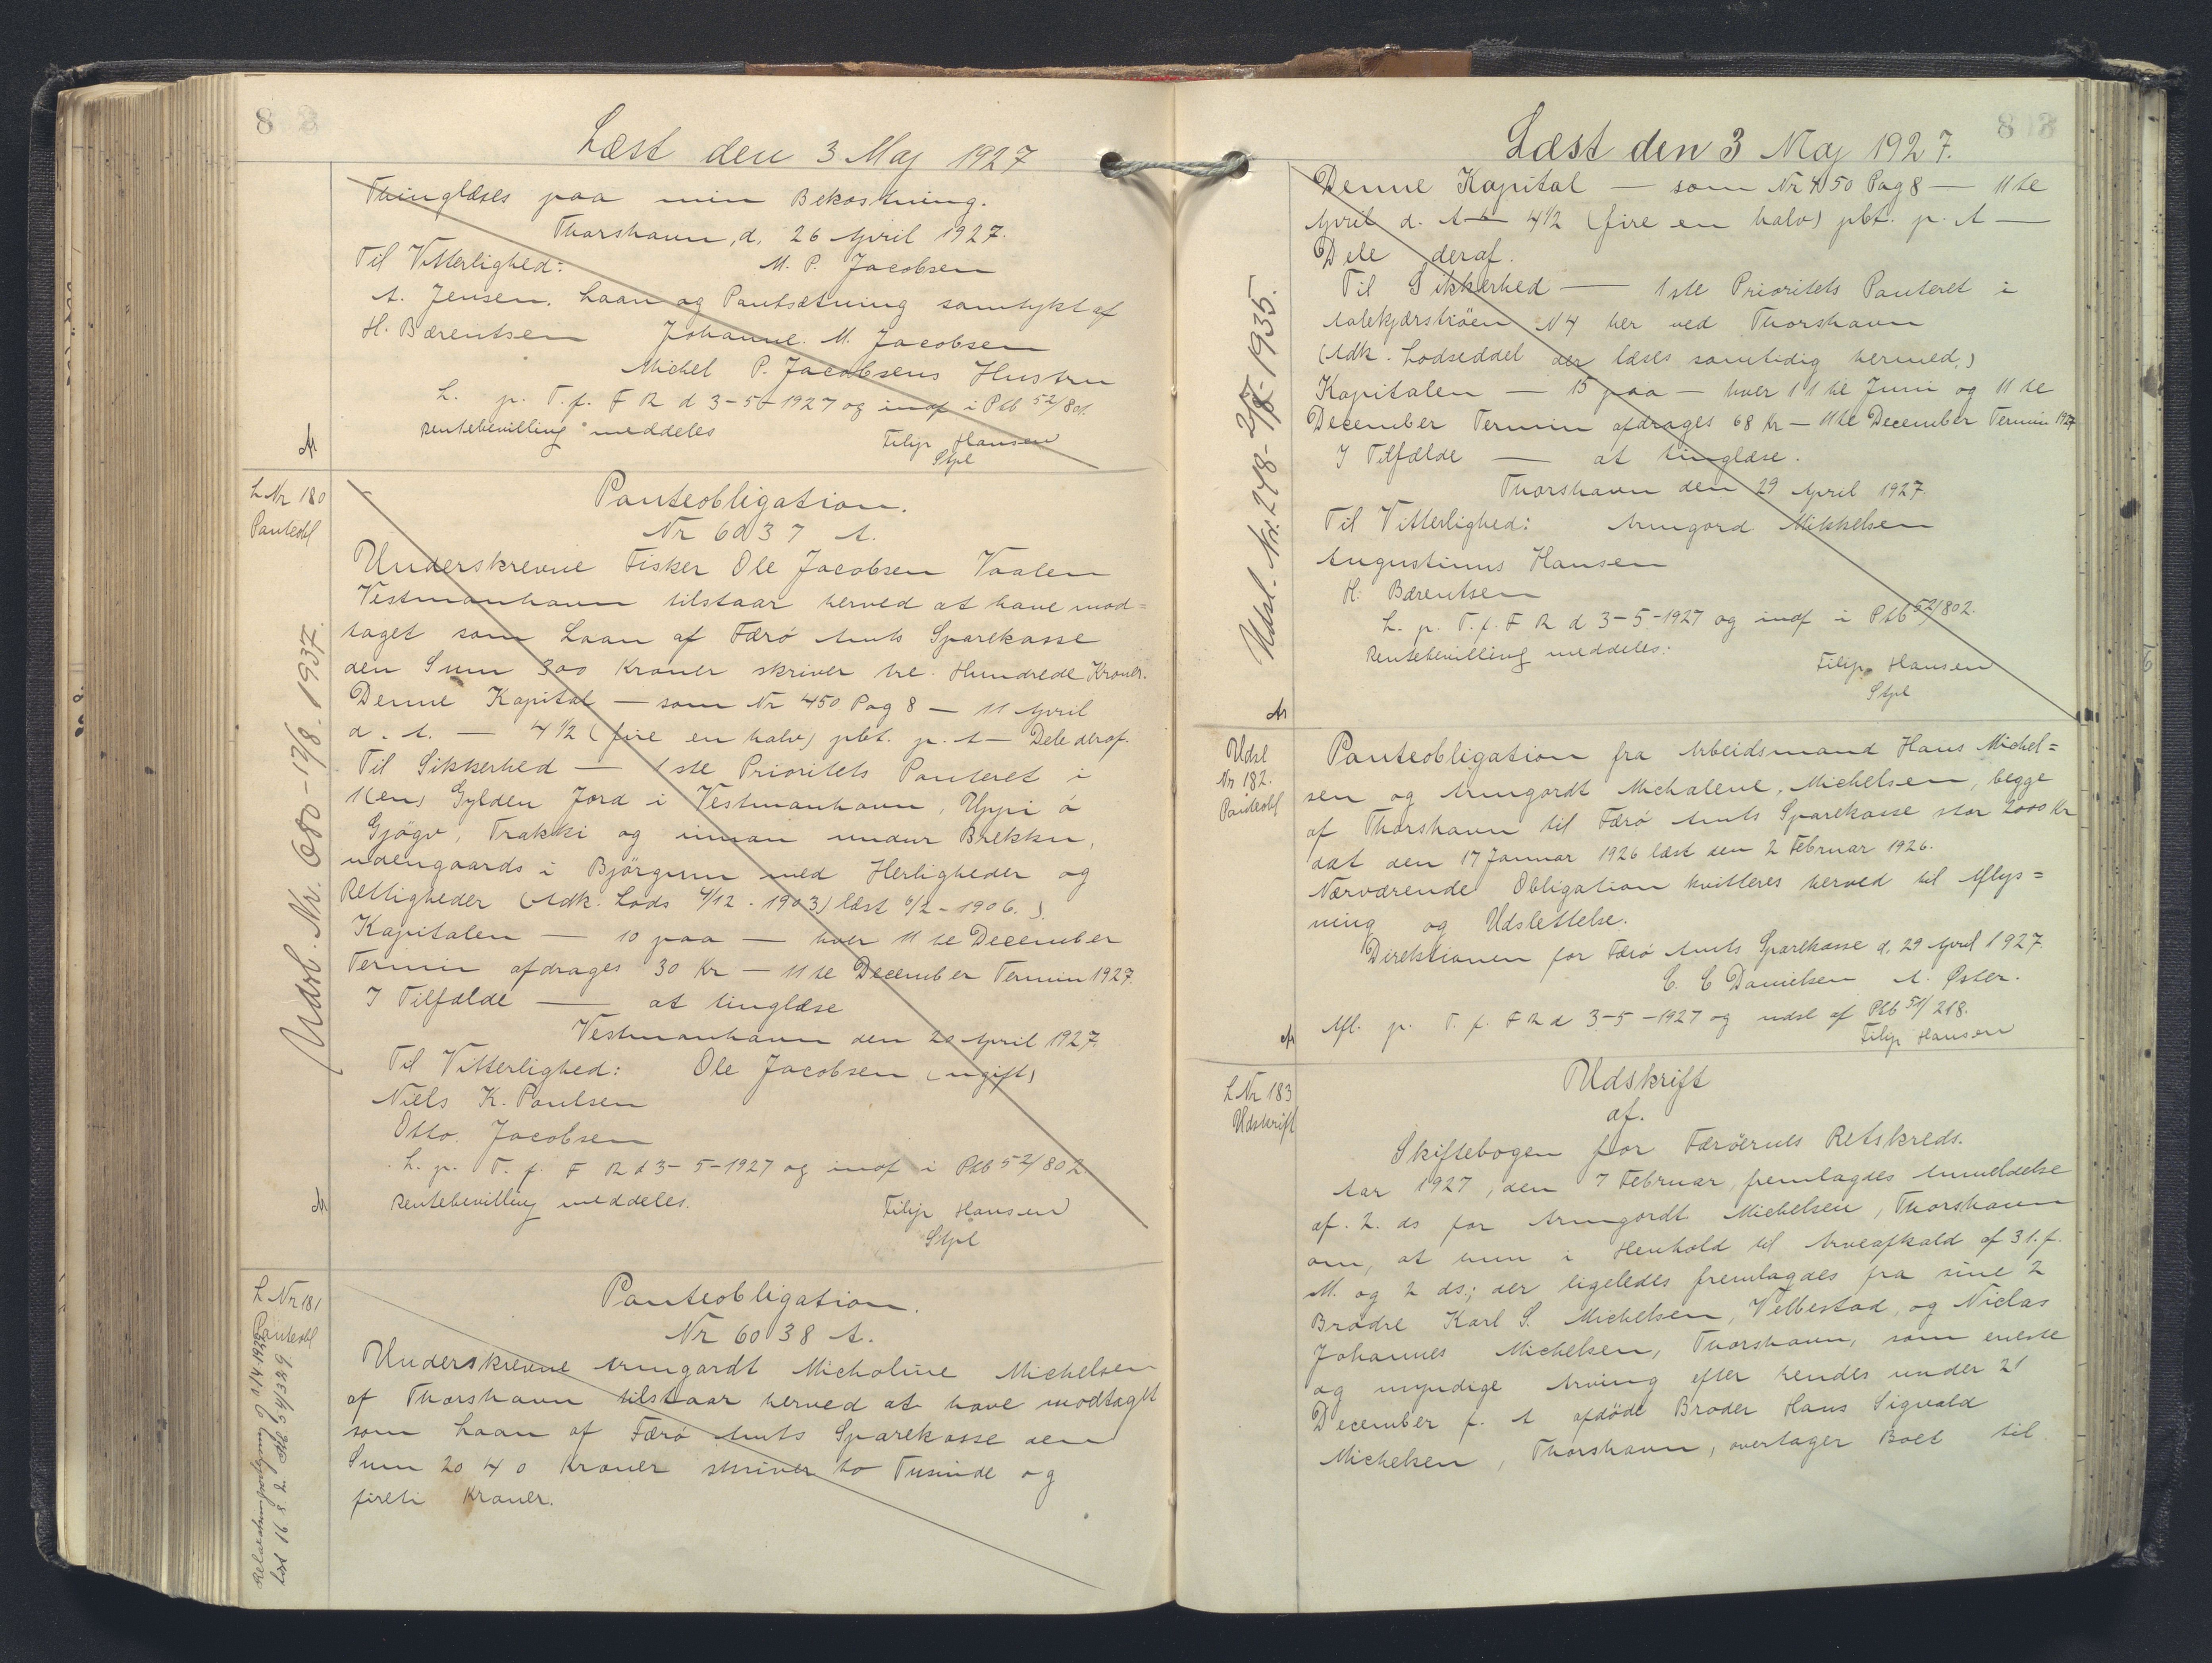 8
Læst den 3 Maj 1927
Thinglæses paa min Bekostning.
Thorshavn, d. 26 April 1927.
Til Vitterlighed: M. P. Jacobsen
A. Jensen. Laan og Pantsætning samtykt af
H. Bærentsen Johanne. M. Jacobsen
Michel P. Jacobsens Hustru
L. p. T. f. F R d 3-5-1927 og indf i Ptb 52/801.
Rentebevilling meddeles Filip Hansen
Stpl
L Nr 180
Panteobl
Panteobligation.
Nr 6037 A.
Underskrevne Fisker Ole Jacobsen Vaalen
Vestmanhavn tilstaar herved at have mod=
taget som Laan af Færø Amts Sparekasse
den Sum 300 Kroner skriver tre Hundrede Kroner.
Denne Kapital — som Nr 450 Pag 8 — 11 April
d. A. — 4 1/2 (fire en halv) pct. p. A — Dele deraf.
Til Sikkerhed — 1ste Prioritets Panteret i
1(en) Gylden Jord i Vestmanhavn, Uppi á
Gjógv, Trakki og innan undur Brekku,
udengaards i Bjørgum med Herligheder og
Rettigheder (Adk. Lods 4/12 - 1903) læst 6/2 - 1906.).
Kapitalen — 10 paa — hver 11te December
Termin afdrages 30 Kr — 11te December Termin 1927.
I Tilfælde — at tinglæse
Vestmanhavn den 20 April 1927.
Til Vitterlighed: Ole Jacobsen (ugift)
Niels K. Poulsen
Otto. Jacobsen
L. p. T. f. F R d 3-5-1927 og indf i Ptb 52/802
Rentebevilling meddeles. Filip Hansen
Stpl
Udsl. Nr. 680 - 17/8. 1937.
L Nr 181
Panteobl
Panteobligation.
Nr 6038 A.
Underskrevne Armgardt Micholine Michelsen
af Thorshavn tilstaar herved at have modtaget
som Laan af Færø Amts Sparekasse den
Sum 2040 Kroner skriver to Tusinde og
fireti Kroner.
Læst den 3 Maj 1927.
8
Denne Kapital — som Nr 450 Pag 8 — 11te
April d. A — 4 1/2 (fire en halv) pct. p. A —
Dele deraf.
Til Sikkerhed — 1ste Prioritets Panteret i
Aalekjærstiöen N4 her ved Thorshavn
(Adk. Lodseddel der læses samtidig hermed.)
Kapitalen — 15 paa — hver 11te Juni og 11te
December Termin afdrages 68 Kr — 11te December Termin 1927
I Tilfælde — at tinglæse.
Thorshavn den 29 April 1927.
Til Vitterlighed: Armgard Mikkelsen
Augustinus Hansen
H. Bærentsen
L. p. T. f. F R d 3-5-1927 og indf i Ptb 52/802.
Rentebevilling meddeles: Filip Hansen
Stpl
Udsl
Nr 182.
Panteobl
Panteobligation fra Arbeidsmand Hans Michel=
sen og Armgardt Michalene, Michelsen, begge
af Thorshavn til Færø Amts Sparekasse stor 2000 Kr
dat den 17 Januar 1926 læst den 2 Februar 1926.
Nærværende Obligation kvitteres herved til Aflys=
ning og Udslettelse.
Direktionen for Færø Amts Sparekasse d. 29 April 1927.
C. C Danielsen A. Øster.
Afl. p. T. f. F R d 3-5-1927 og udsl af Ptb 51/218.
Filip Hansen
L Nr 183
Udskrift
Udskrift
af.
Skiftebogen for Færøernes Retskreds.
Aar 1927, den 7 Februar, fremlagdes Anmeldelse
af. 2. ds for Armgardt Michelsen, Thorshavn
om, at hun i Henhold til Arveafkald af 31. f.
M. og 2 ds; der ligeledes fremlagdes fra sine 2
Brødre Karl S. Michelsen, Velbestad, og Niclas
Johannes Michelsen, Thorshavn, som eneste
og myndige Arving efter hendes under 21
December f. A afdöde Broder Hans Sigvald
Michelsen, Thorshavn, overtager Boet til